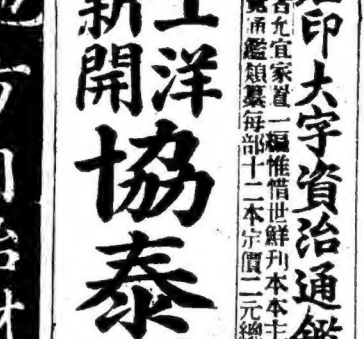 印大字資治通鑑
宜家置一編惟惜世鮮刊本本主
通鑑類纂每部十二本定價二元總
上洋
新開
協泰
方